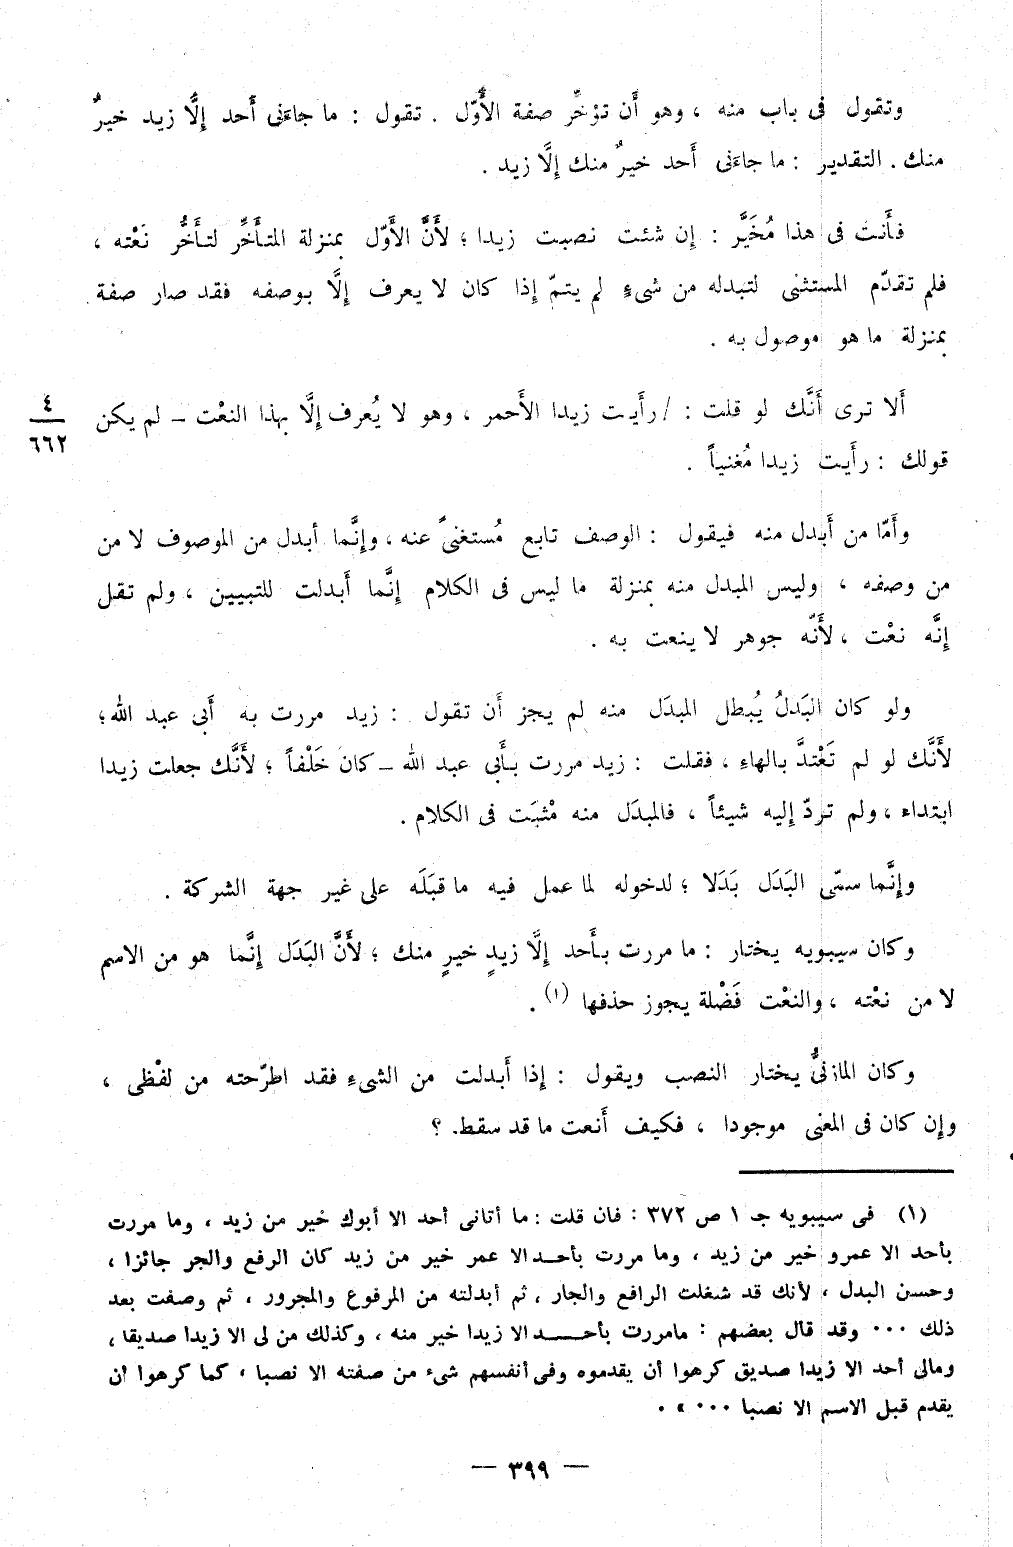 وتقول فى باب منه ، وهو أَن تؤخِّر صفة الأَوّل . تقول : ما جاءَنى أَحد إِلَّا زيد خيرٌ
منك . التقدير : ما جاءَنى أَحد خيرٌ منك إِلَّا زيد .
فأَنت فى هذا مُخَيَّر : إِن شئت نصبت زيدا ؛ لأَنَّ الأَوّل بمنزلة المتأَخِّر لتأَخُّر نَعْته ،
فلم تقدّم المستثنى لتبدله من شىءٍ لم يتمّ إِذا كان لا يعرف إِلَّا بوصفه فقد صار صفة
بمنزلة ما هو موصول به .
أَلا ترى أَنَّك لو قلت : / رأَيت زيدا الأَحمر ، وهو لا يُعرف إِلَّا بهذا النعْت – لم يكن
٤
٦٦٢
قولك : رأَيت زيدا مُغنياً .
وأَمّا من أَبدل منه فيقول : الوصف تابع مُستغنىً عنه ، وإِنَّما أبدل من الموصوف لا من
من وصفه ، وليس المبدل منه بمنزلة ما ليس فى الكلام إِنَّما أَبدلت للتبيين ، ولم تقل
إِنَّه نعْت ، لأَنّه جوهر لا ينعت به .
ولو كان البَدلُ يُبطل المبدَل منه لم يجز أَن تقول : زيد مررت به أَبى عبد الله؛
لأَنَّك لو لم تَعْتدَّ بالهاءِ ، فقلت : زيد مررت بأَبى عبد الله – كان خَلْفاً ؛ لأَنَّك جعلت زيدا
ابتداء ، ولم تردّ إِليه شيئاً ، فالمبدَل منه مْثبَت فى الكلام .
وإِنَّما سمّى البَدَل بَدَلا ؛ لدخوله لما عمل فيه ما قبَلَه على غير جهة الشركة .
وكان سيبويه يختار : ما مررت بأَحد إِلَّا زيدٍ خيرٍ منك ؛ لأَنَّ البَدَل إِنَّما هو من الاسم
لا من نعْته ، والنعْت فَضْلة يجوز حذفها (١) .
وكان المازنىُّ يختار النصب ويقول : إِذا أَبدلت من الشىءِ فقد اطرّحته من لفْظى ،
وإِن كان فى المعنى موجودا ، فكيف أَنعت ما قد سقط. ؟
(١) فى سيبويه جـ ١ ص ٣٧٢ : فان قلت : ما أتانى أحد الا أبوك خير من زيد ، وما مررت
بأحد الا عمرو خير من زيد ، وما مررت بأحد الا عمر خير من زيد كان الرفع والجر جائزا ،
وحسن البدل ، لأنك قد شغلت الرافع والجار ، ثم أبدلته من المرفوع والمجرور ، ثم وصفت بعد
ذلك ٠٠٠ وقد قال بعضهم : مامررت بأحد الا زيدا خير منه ، وكذلك من لى الا زيدا صديقا ،
ومالى أحد الا زيدا صديق كرهوا أن يقدموه وفى أنفسهم شىء من صفته الا نصبا ، كما كرهوا أن
يقدم قبل الاسم الا نصبا ٠٠٠ » ٠
— ٣٩٩ —